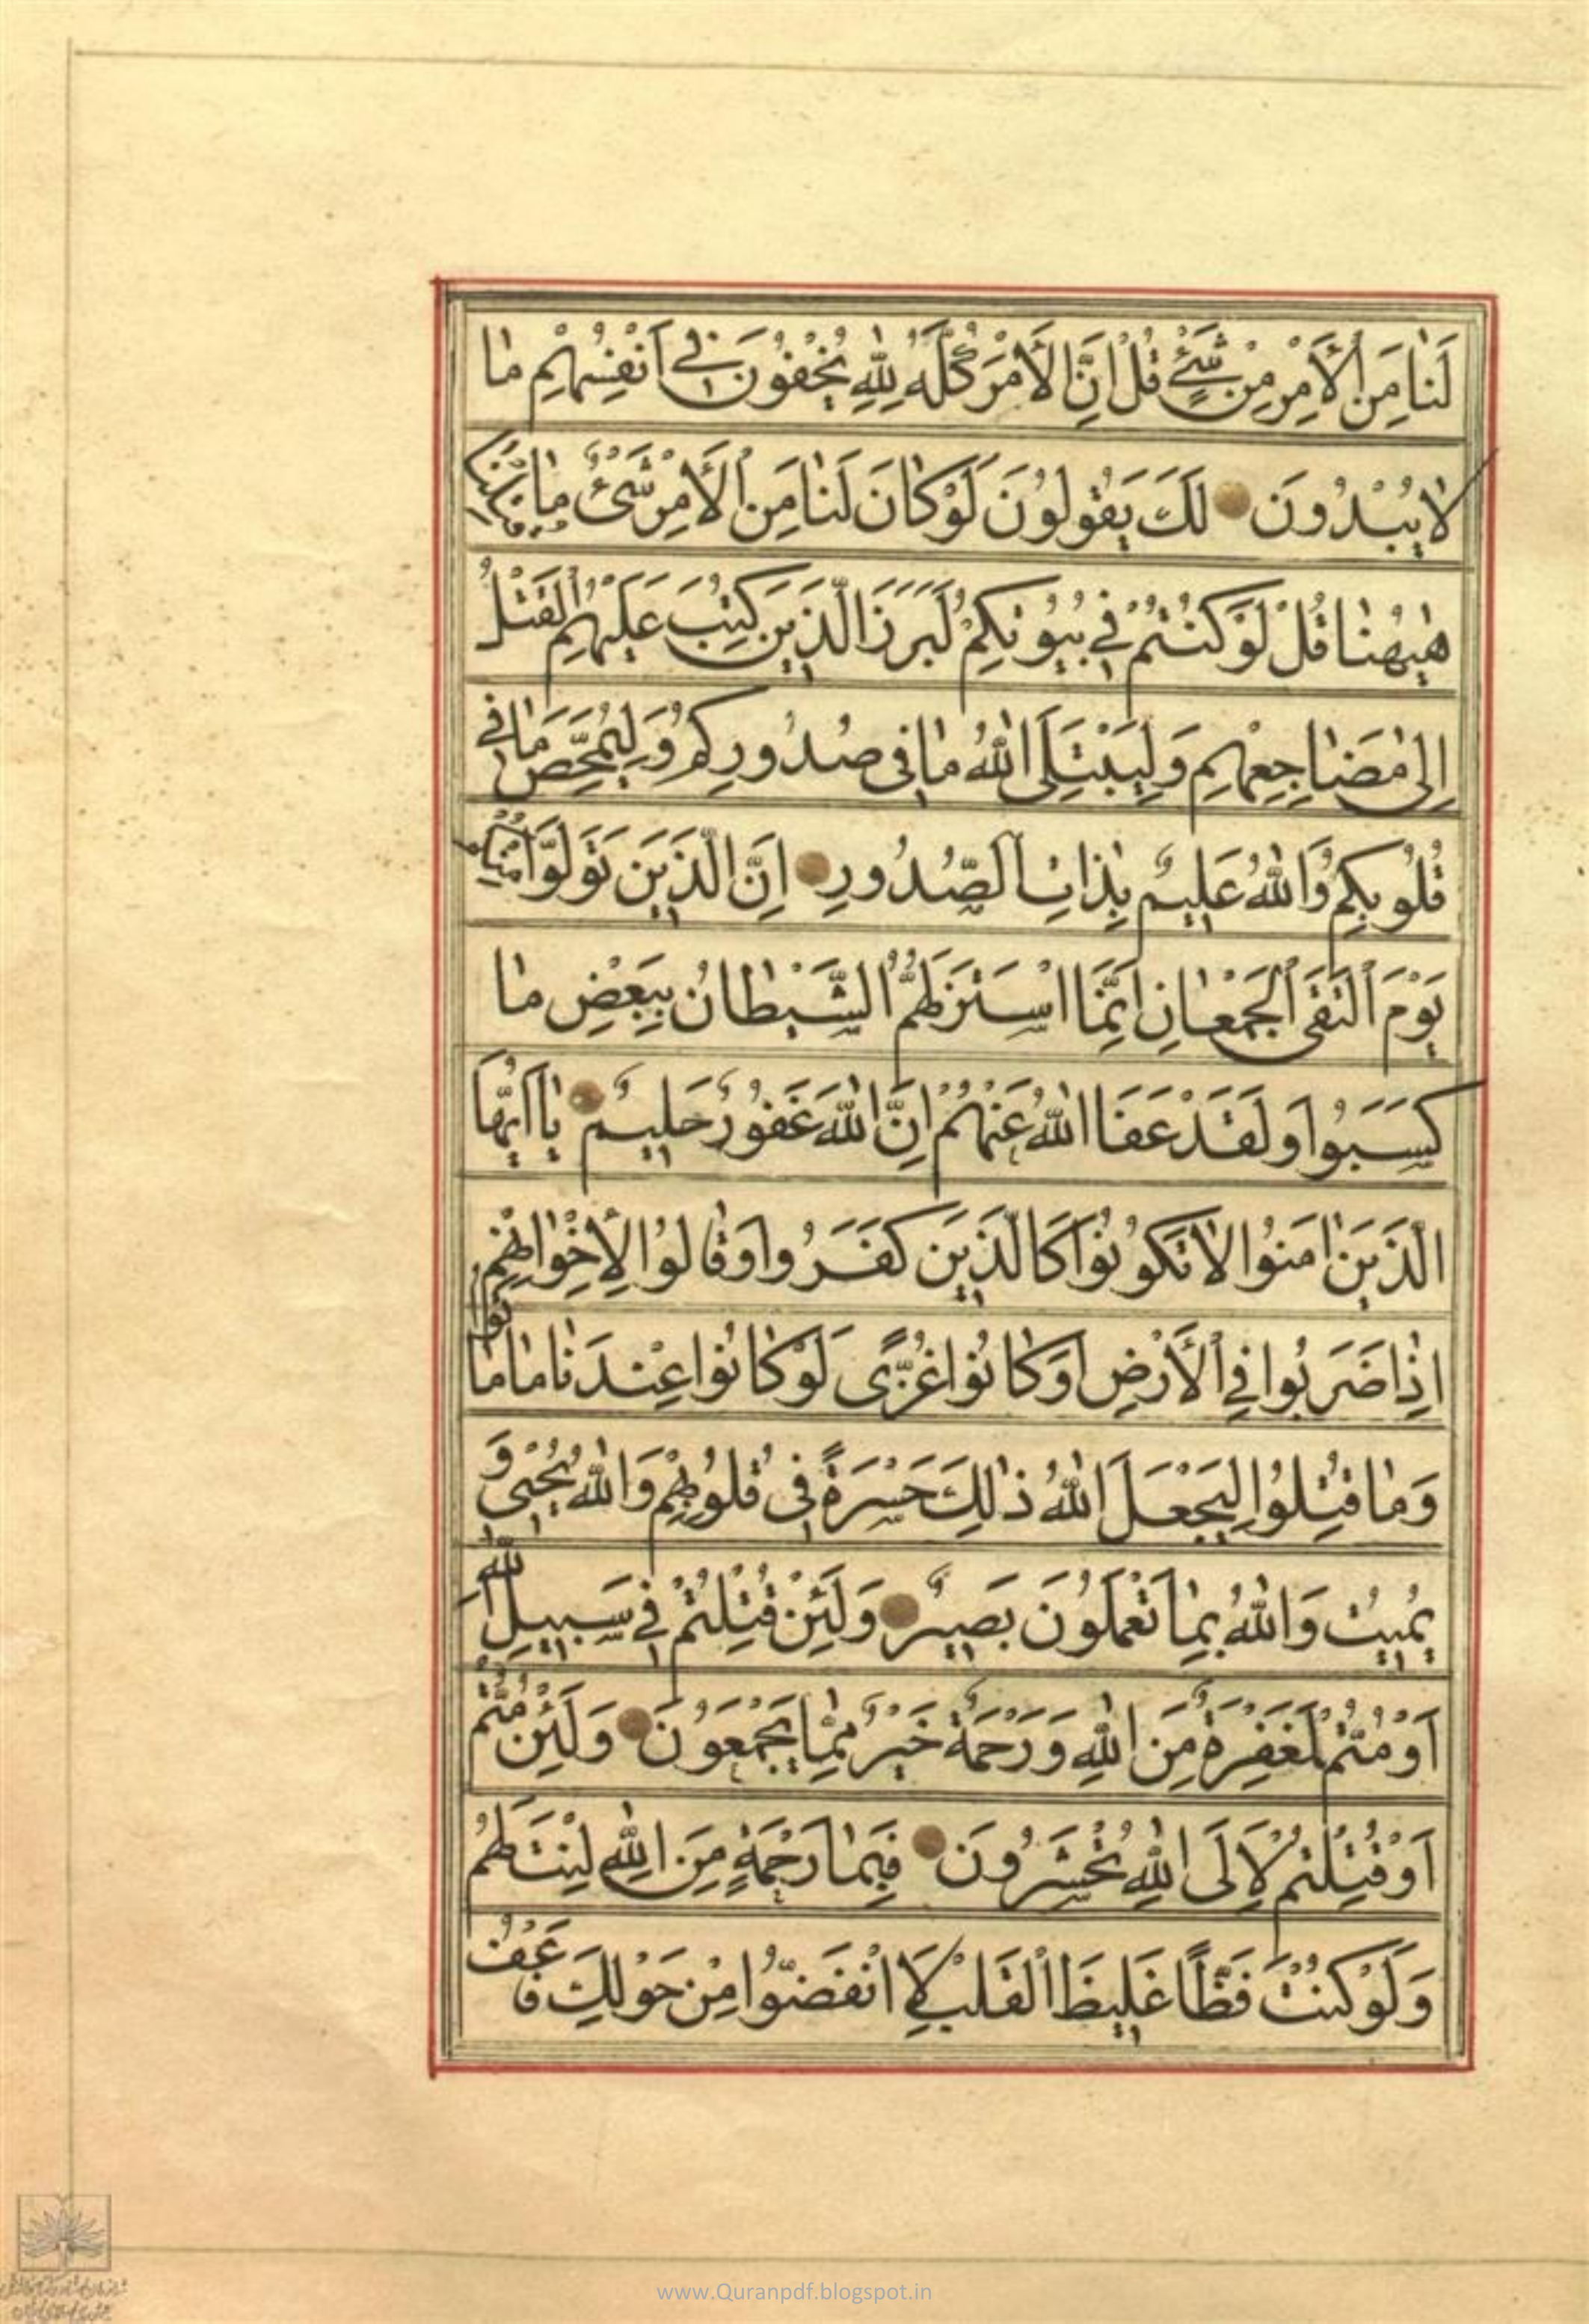 لَنَا مِنَ الْأَمْرِ مِنْ شَيْءٍ قُلْ اِنَّ الْأَمْرَ كُلَّهُ لِلّٰهِ يُخْفُونَ فِي اَنْفُسِهِمْ مٰا
لٰا يُبْدُونَ لَكَ يَقُولُونَ لَوْ كٰانَ لَنٰا مِنَ الْأَمْرِ شَيْءٌ مٰا
هٰيهُنٰا قُلْ لَوْ كُنْتُمْ فِي بُيُوتِكُمْ لَبَرَزَ الَّذِينَ كُتِبَ عَلَيْهِمُ الْقَتْلُ
اِلىٰ مَضٰاجِعِهِمْ وَلِيَبْتَلِيَ اللّٰهُ مٰا فِى صُدُورِكُمْ وَلِيُمَحِّصَ مٰا فِي
قُلُوبِكُمْ وَاللّٰهُ عَلِيمٌ بِذٰاتِ الصُّدُورِ اِنَّ الَّذِينَ تَوَلَّوْا مِنْكُمْ
يَوْمَ الْتَقَى الْجَمْعٰانِ اِنَّمَا اسْتَزَلَّهُمُ الشَّيْطٰانُ بِبَعْضِ مٰا
كَسَبُوا وَلَقَدْ عَفَا اللّٰهُ عَنْهُمْ اِنَّ اللّٰهَ غَفُورٌ حَلِيمٌ يٰا اَيُّهَا
الَّذِينَ اٰمَنُوا لٰا تَكُونُوا كَالَّذِينَ كَفَرُوا وَقٰالُوا لِاِخْوٰانِهِمْ
اِذٰا ضَرَبُوا فِي الْأَرْضِ اَوْ كٰانُوا غُزًّى لَوْ كٰانُوا عِنْدَنٰا مٰا مٰاتُوا
وَمٰا قُتِلُوا لِيَجْعَلَ اللّٰهُ ذٰلِكَ حَسْرَةً فِى قُلُوبِهِمْ وَاللّٰهُ يُحْيِى وَ
يُمِيتُ وَاللّٰهُ بِمٰا تَعْمَلُونَ بَصِيرٌ وَلَئِنْ قُتِلْتُمْ فِي سَبِيلِ اللّٰهِ
اَوْ مُتُّمْ لَمَغْفِرَةٌ مِنَ اللّٰهِ وَرَحْمَةٌ خَيْرٌ مِمّٰا يَجْمَعُونَ وَلَئِنْ مُتُّمْ
اَوْ قُتِلْتُمْ لَاِلَى اللّٰهِ تُحْشَرُونَ فَبِمٰا رَحْمَةٍ مِنَ اللّٰهِ لِنْتَ لَهُمْ
وَلَوْ كُنْتَ فَظًّا غَلِيظَ الْقَلْبِ لَا انْفَضُّوا مِنْ حَوْلِكَ فَاعْفُ
www.Quranpdf.blogspot.in